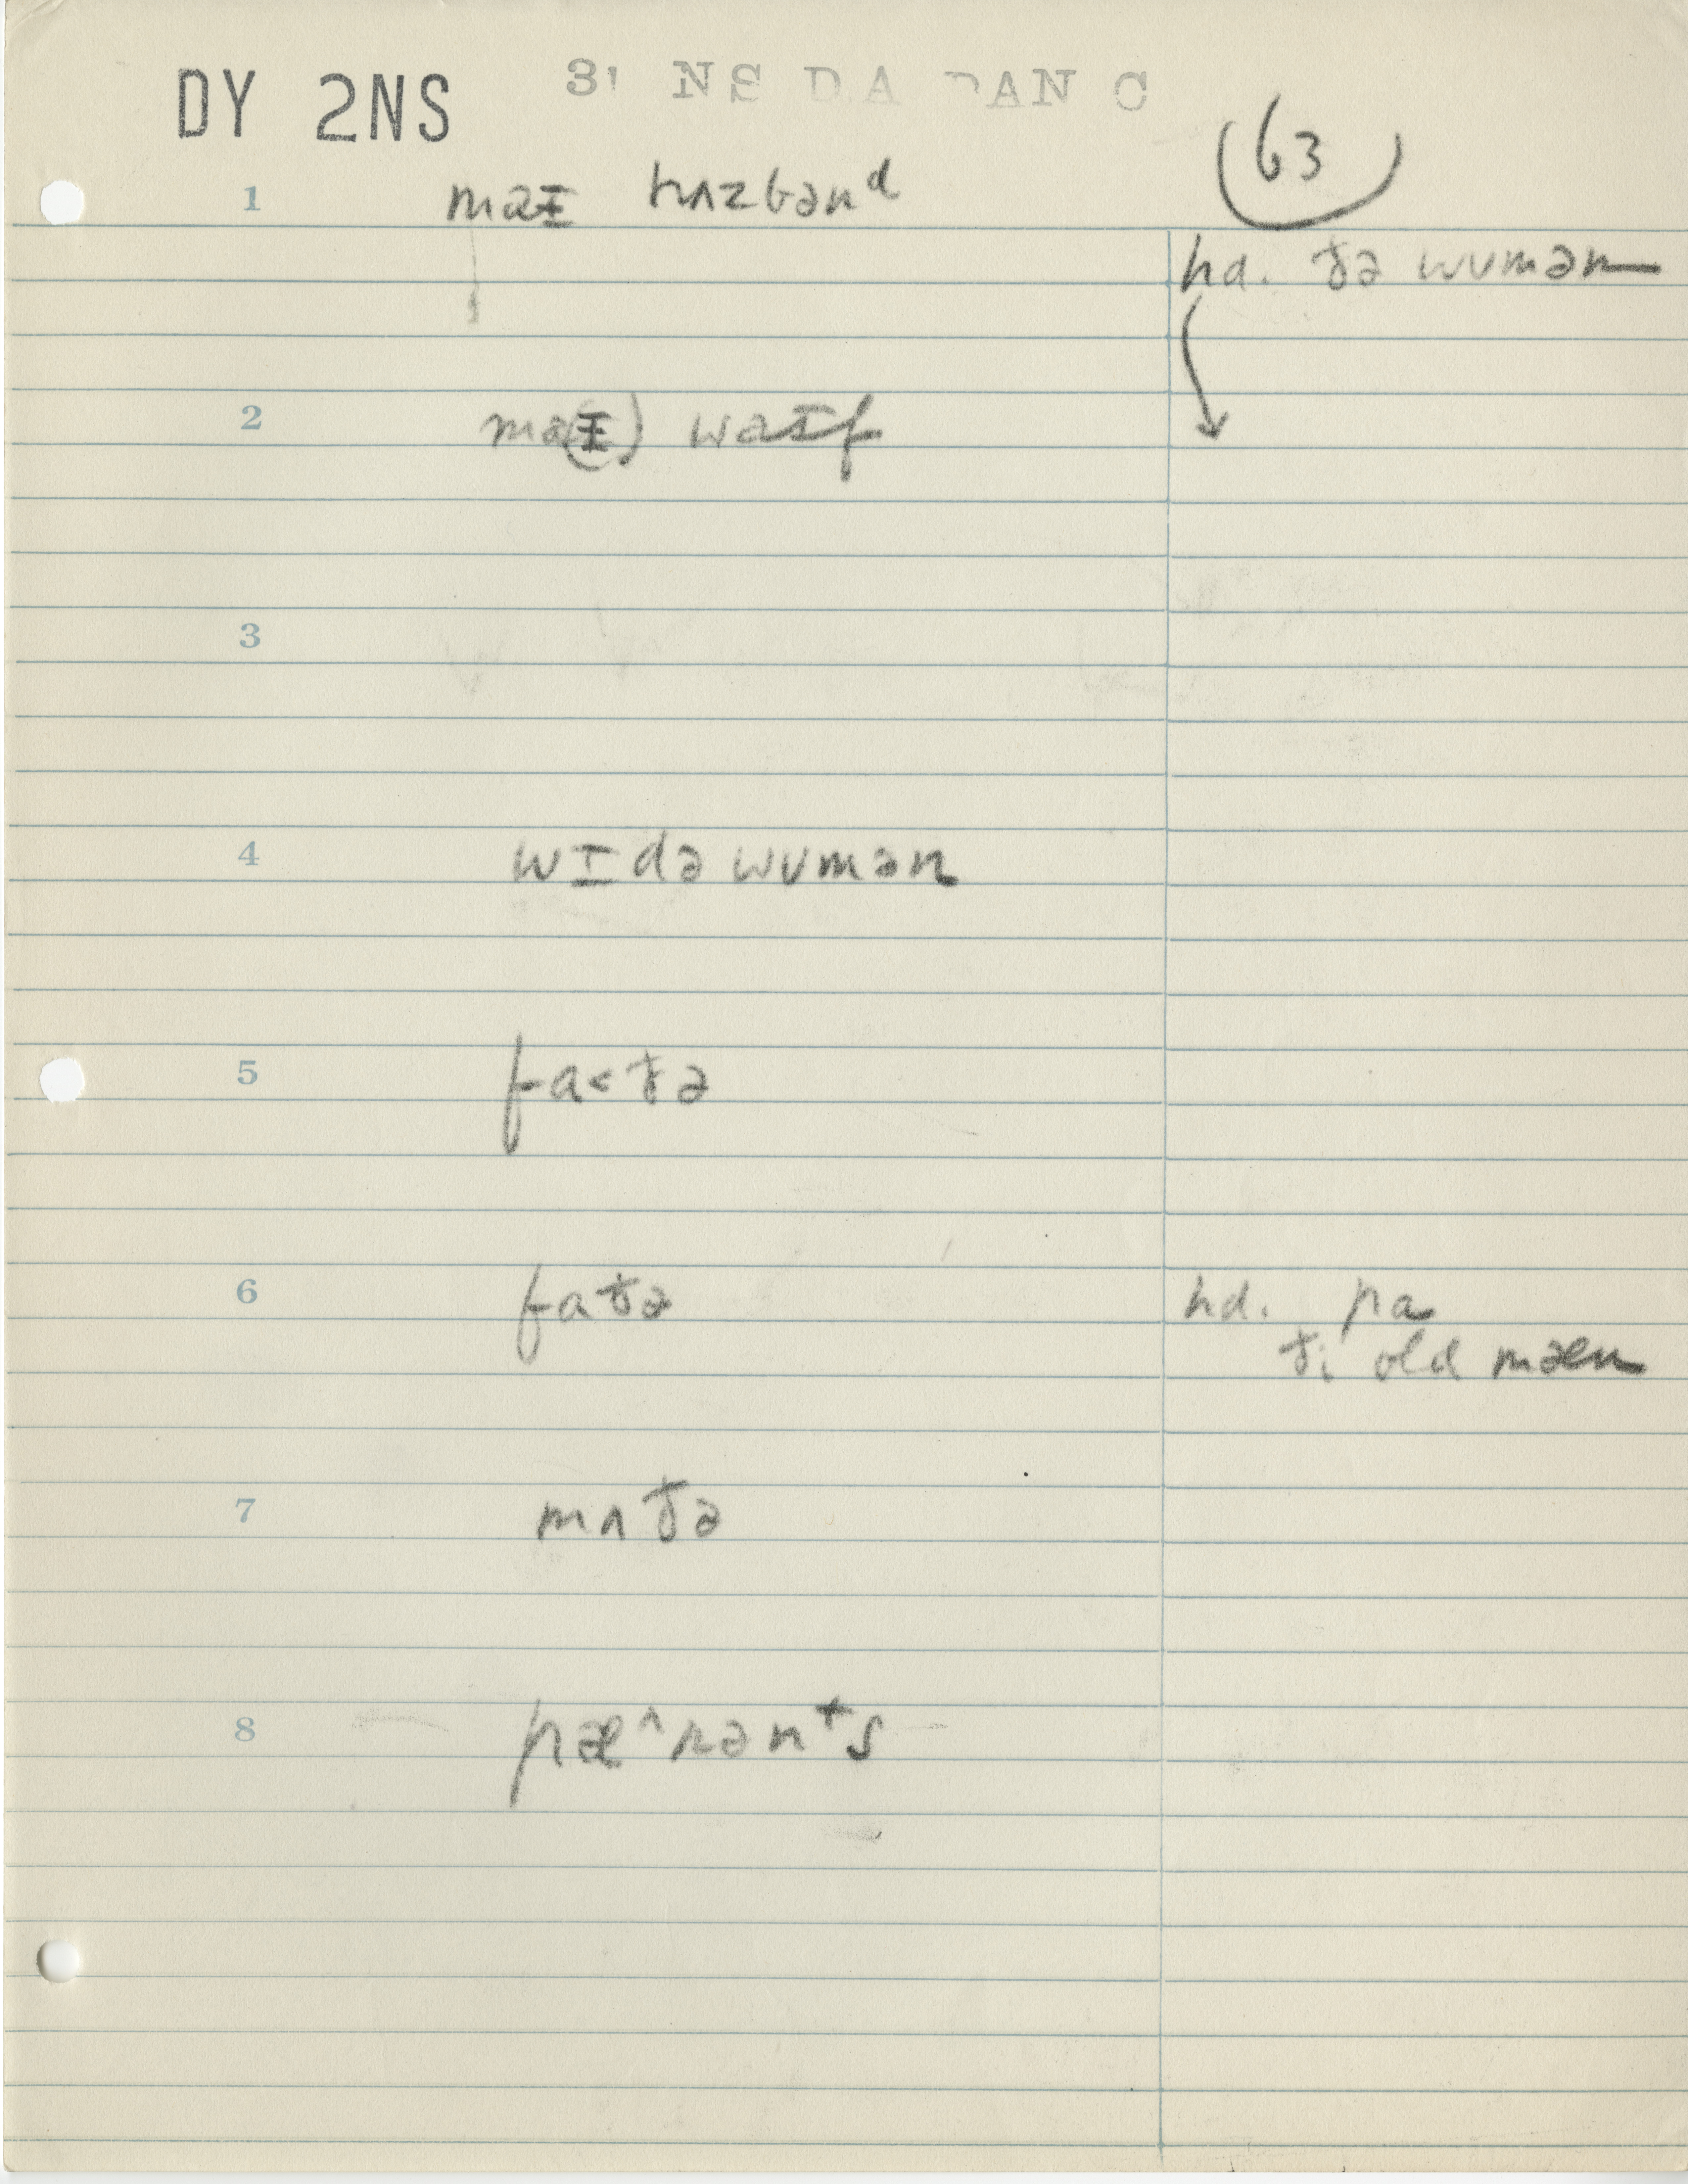 DY 2NS
63
1 maɪ hʌzbənᵈ
hd. ðə wʊmən
2 ma(ɪ) waɪf
3
4 wɪdəwʊmən
5 fa<ðə
6 faðə
hd. pa
ði old mæn
7 mʌðə
8 pæ^rənᵗs